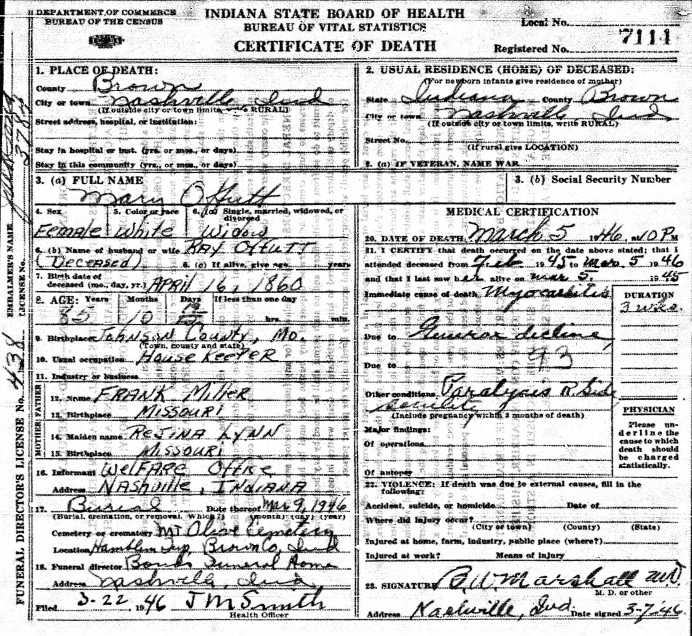 DEPARTMENT OF COMMERCE
BUREAU OF THE CENSUS
INDIANA STATE BOARD OF HEALTH
BUREAU OF VITAL STATISTICS
CERTIFICATE OF DEATH
Local No.
Registered No. 7111
1. PLACE OF DEATH:
County Brown
City or town Nashville Ind
(If outside city or town limits, write RURAL)
Street address, hospital, or institution:
Stay in hospital or inst. (yrs., or mos., or days)
Stay in this community (yrs., or mos., or days)
2. USUAL RESIDENCE (HOME) OF DECEASED:
(For newborn infants give residence of mother)
State Indiana County Brown
City or town Nashville Ind
(If outside city or town limits, write RURAL)
Street No.
(If rural give LOCATION)
2. (a) IF VETERAN, NAME WAR
3. (a) FULL NAME
Mary Offutt
3. (b) Social Security Number
4. Sex 5. Color or race 6. (a) Single, married, widowed, or divorced
Female White Widow
6. (b) Name of husband or wife Ray Offutt
(Deceased) 6. (c) If alive, give age years
7. Birth date of
deceased (mo., day, yr.) April 16, 1860
8. AGE: Years Months Days If less than one day
85 10 hrs. min.
9. Birthplace Johnson County, Mo.
(Town, county and state)
10. Usual occupation House Keeper
11. Industry or business
FATHER
12. Name Frank Miller
13. Birthplace Missouri
MOTHER
14. Maiden name Rejina Lynn
15. Birthplace Missouri
16. Informant Welfare Office
Address Nashville, Indiana
17. Burial Date thereof Mar 9, 1946
(Burial, cremation, or removal. Which?) (month) (day) (year)
Cemetery or crematory Mt Olive Cemetery
Location Hamblen Twp, Brown Co, Ind
18. Funeral director Bonds Funeral Home
Address Nashville, Ind.
Filed 3-22, 1946 J M Smith
Health Officer
MEDICAL CERTIFICATION
20. DATE OF DEATH March 5 1946, at 10 PM
21. I CERTIFY that death occurred on the date above stated; that I
attended deceased from Feb 1945 to Mar 5 1946
and that I last saw her alive on Mar 5. 1945
Immediate cause of death Myocarditis
DURATION
3 wks.
Due to General decline
Due to 93
Other conditions Paralysis R. Side
senility
(Include pregnancy within 3 months of death)
Major findings:
Of operations
Of autopsy
PHYSICIAN
Please underline the cause to which death should be charged statistically.
22. VIOLENCE: If death was due to external causes, fill in the following:
Accident, suicide, or homicide Date of
Where did injury occur?
(City or town) (County) (State)
Injured at home, farm, industry, public place (where?)
Injured at work? Means of injury
23. SIGNATURE B. W. Marshall M.D.
M. D. or other
Address Nashville, Ind. Date signed 3-7-46
FUNERAL DIRECTOR'S LICENSE No. 438
EMBALMER'S NAME